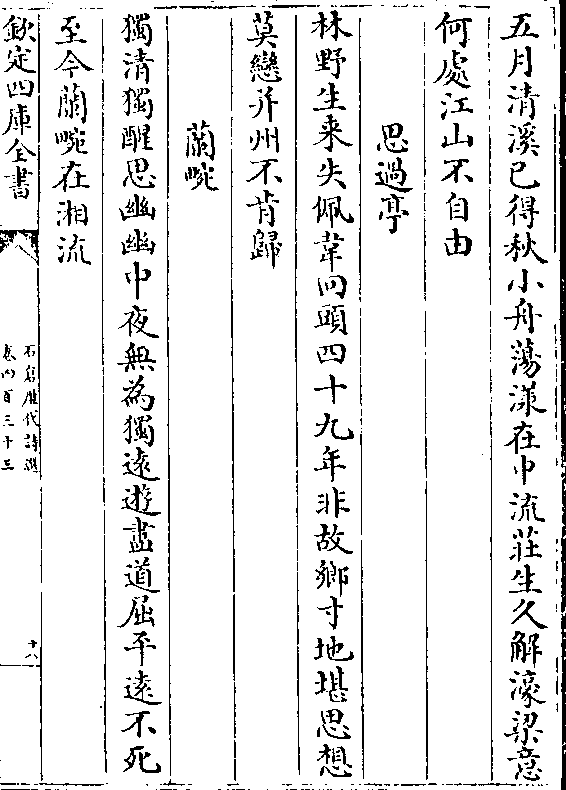 五月清溪已得秋小舟蕩漾在中流莊生久解濠梁意
何處江山不自由
思過亭
林野生来失佩韋回頭四十九年非故鄉寸地堪思想
莫戀并州不肯歸
蘭畹
獨清獨醒思幽幽中夜無為獨遠遊盡道屈平遠不死
至今蘭畹在湘流
欽定四庫全書
石倉歷代詩選
卷四百三十三
十八